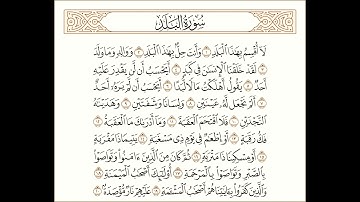 سُورَةُ الْبَلَدِ
لَا أُقْسِمُ بِهَٰذَا الْبَلَدِ ۝١ وَأَنتَ حِلٌّ بِهَٰذَا الْبَلَدِ ۝٢ وَوَالِدٍ وَمَا وَلَدَ
۝٣ لَقَدْ خَلَقْنَا الْإِنسَٰنَ فِي كَبَدٍ ۝٤ أَيَحْسَبُ أَن لَّن يَقْدِرَ عَلَيْهِ
أَحَدٌ ۝٥ يَقُولُ أَهْلَكْتُ مَالًا لُّبَدًا ۝٦ أَيَحْسَبُ أَن لَّمْ يَرَهُۥ أَحَدٌ
۝٧ أَلَمْ نَجْعَل لَّهُۥ عَيْنَيْنِ ۝٨ وَلِسَانًا وَشَفَتَيْنِ ۝٩ وَهَدَيْنَٰهُ
النَّجْدَيْنِ ۝١٠ فَلَا اقْتَحَمَ الْعَقَبَةَ ۝١١ وَمَا أَدْرَىٰكَ مَا الْعَقَبَةُ ۝١٢
فَكُّ رَقَبَةٍ ۝١٣ أَوْ إِطْعَٰمٌ فِي يَوْمٍ ذِي مَسْغَبَةٍ ۝١٤ يَتِيمًا ذَا مَقْرَبَةٍ
۝١٥ أَوْ مِسْكِينًا ذَا مَتْرَبَةٍ ۝١٦ ثُمَّ كَانَ مِنَ الَّذِينَ ءَامَنُوا وَتَوَاصَوْا
بِالصَّبْرِ وَتَوَاصَوْا بِالْمَرْحَمَةِ ۝١٧ أُولَٰئِكَ أَصْحَٰبُ الْمَيْمَنَةِ ۝١٨
وَالَّذِينَ كَفَرُوا بِـَٔايَٰتِنَا هُمْ أَصْحَٰبُ الْمَشْـَٔمَةِ ۝١٩ عَلَيْهِمْ نَارٌ مُّؤْصَدَةٌ ۝٢٠